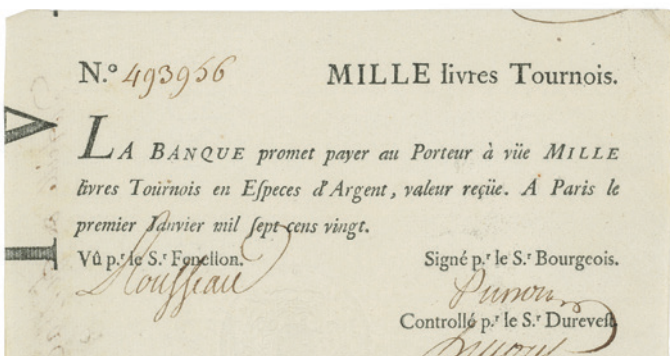 N.º 493956 MILLE livres Tournois.
LA BANQUE promet payer au Porteur à vüe MILLE
livres Toürnois en Eſpeces d'Argent, valeur reçüe. A Paris le
premier Janvier mil ſept cens vingt.
Vû p.r le S.r Fenellon. Signé p.r le S.r Bourgeois.
Rousseau
Controllé p.r le S.r Dureveſt.